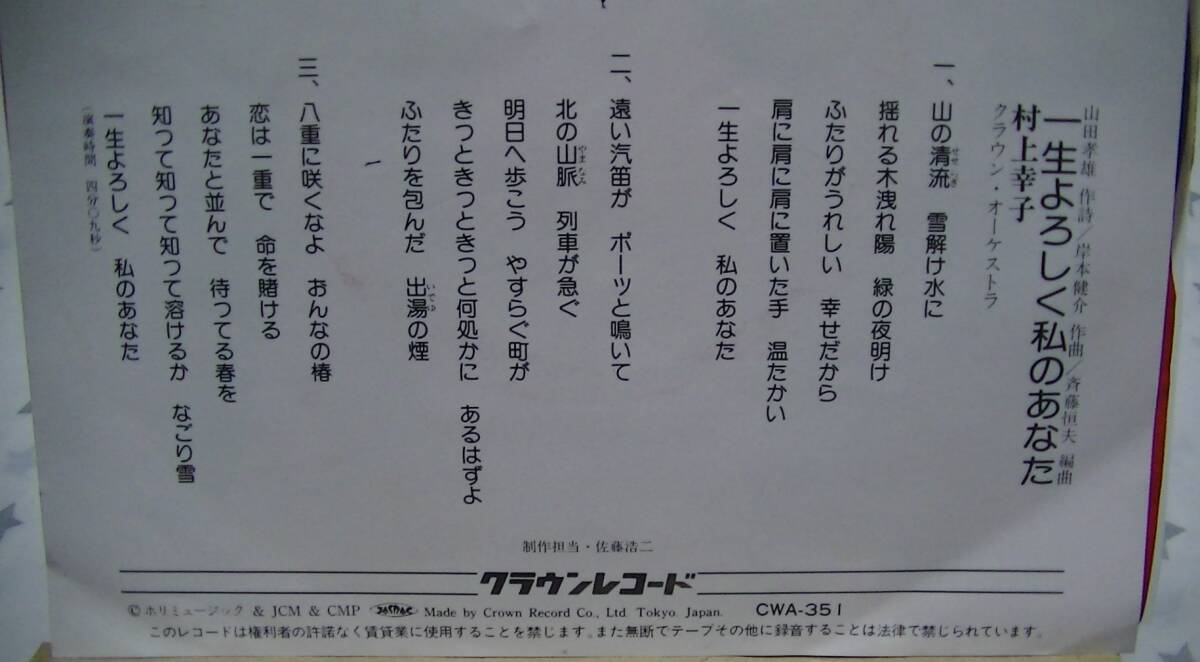 山田孝雄 作詩/岸本健介 作曲/斉藤恒夫 編曲
一生よろしく私のあなた
村上幸子
クラウン・オーケストラ
一、山の清流 雪解け水に
せせらぎ
揺れる木洩れ陽 緑の夜明け
ふたりがうれしい 幸せだから
肩に肩に肩に置いた手 温たかい
一生よろしく 私のあなた
二、遠い汽笛が ポーッと鳴いて
北の山脈 列車が急ぐ
やまなみ
明日へ歩こう やすらぐ町が
きっときっときっと何処かに あるはずよ
ふたりを包んだ 出湯の煙
いでゆ
三、八重に咲くなよ おんなの椿
恋は一重で 命を賭ける
あなたと並んで 待ってる春を
知って知って知って溶けるか なごり雪
一生よろしく 私のあなた
(演奏時間 四分〇九秒)
制作担当・佐藤浩二
クラウンレコード
©ホリミュージック & JCM & CMP JASRAC Made by Crown Record Co., Ltd. Tokyo. Japan. CWA-351
このレコードは権利者の許諾なく賃貸業に使用することを禁じます。また無断でテープその他に録音することは法律で禁じられています。